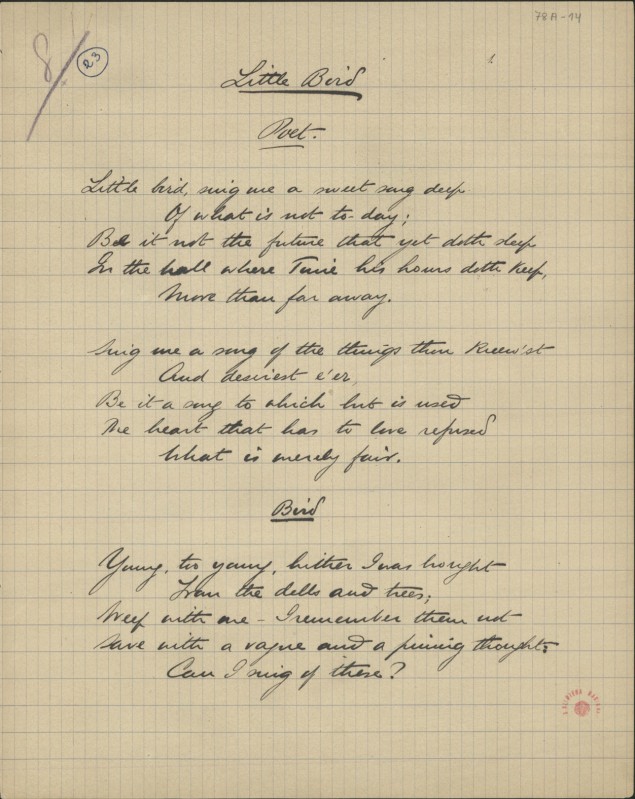 78A-14
8.
23
1
Little Bird
Poet.
Little bird, sing me a sweet song deep
Of what is not to-day;
Be it not the future that yet doth sleep
In the hall where Time his hours doth keep,
More than far away.
Sing me a song of the things thou knew'st
And desirest e'er,
Be it a song to which but is used
The heart that has to love refused
What is merely fair.
Bird
Young, too young, hither I was brought
From the dells and trees;
Weep with me - I remember them not
Save with a vague and a pining thought:
Can I sing of these?